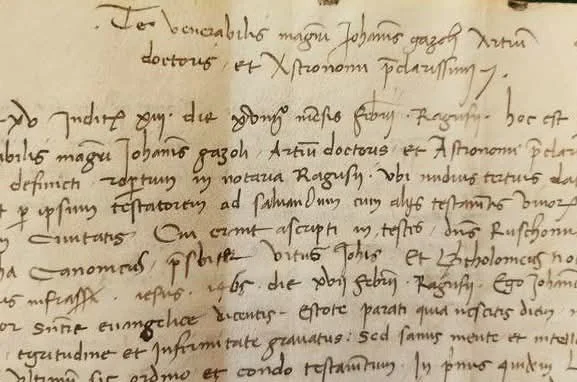 Te venerabilis magr̄i Johanis gazoli Artiū
doctoris, et Astronomi p̄clarissimi
xv Indit. xiii. die mēsis Febrii. Ragusii. hoc est
abilis magr̄i Johanīs gazoli, Artiū doctoris, et Astronomi p̄clar
definicti, rēptum in notaria Ragusii. Ubi nudius tertius dat
t p ipsum testatorem ad saluandum cum alijs testamētis vivor
Civitatis Cui erant ascripti in testes, dn̄s Ruschoni
Canonicus, p̄sbiter Vitus Johis, et Btholomeus no
us infrass. iesus. 1465. die xvii Febrii. Ragusii. Ego Johann
or Sn̄tie euangelice dicentis. Estote parati quia nescitis diem,
egritudine et infirmitate gravatus: Sed sanus mente et intell
ultimum sic ordino et condo testamētum. In p̄mis